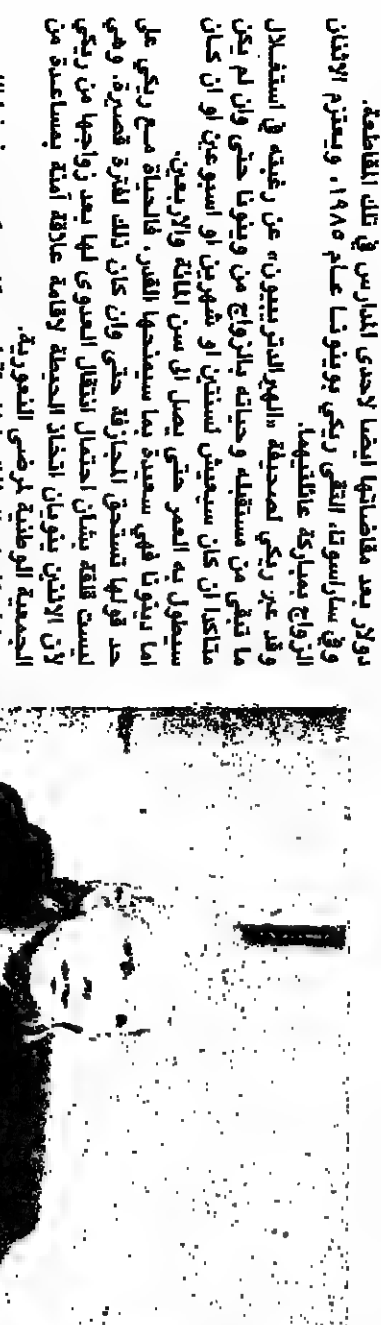 دولار بعد مقاضاتها ايضا لاحدى المدارس في تلك المقاطعة.
وفي ساراسوتا، التقى ريكي بوينونا عام ١٩٨٥، ويعتزم الاثنان
الزواج بمباركة عائلتيهما.
وقد عبر ريكي لصحيفة «الهيرالدتريبيون» عن رغبته في استغلال
ما تبقى من مستقبله وحياته بالزواج من وينونا حتى وان لم يكن
متاكدا ان كان سيعيش لسنتين او شهرين او اسبوعين او ان كان
سيطول به العمر حتى يصل الى سن المائة والاربعين.
اما وينونا فهي سعيدة بما سيمنحها القدر. فالحياة مع ريكي على
حد قولها تستحق المجازفة حتى وان كان ذلك لفترة قصيرة. وهي
ليست قلقة بشأن احتمال انتقال العدوى لها بعد زواجها من ريكي
لأن الاثنين ينويان اتخاذ الحيطة لاقامة علاقة آمنة بمساعدة من
الجمعية الوطنية لمرضى النعورية.